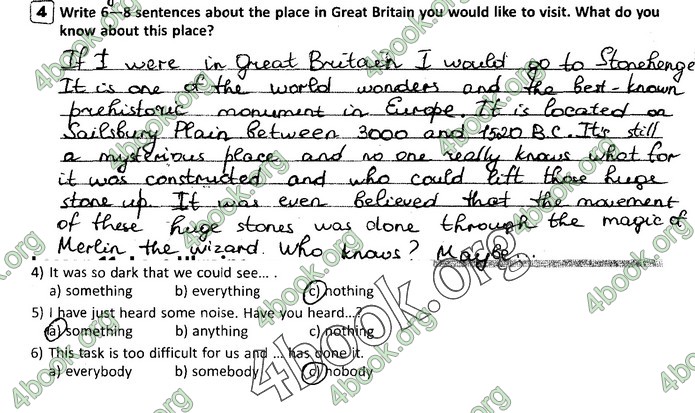 4 Write 6–8 sentences about the place in Great Britain you would like to visit. What do you
know about this place?
If I were in Great Britain I would go to Stonehenge
It is one of the world wonders and the best-known
prehistoric monument in Europe. It is located on
Sailsbury Plain between 3000 and 1520 B.C. It's still
a mysterious place and no one really knows what for
it was constructed and who could lift those huge
stone up. It was even believed that the movement
of these huge stones was done through the magic of
Merlin the wizard. Who knows? Maybe...
4) It was so dark that we could see... .
a) something b) everything c) nothing
5) I have just heard some noise. Have you heard...?
a) something b) anything c) nothing
6) This task is too difficult for us and ... has done it.
a) everybody b) somebody c) nobody
4book.org